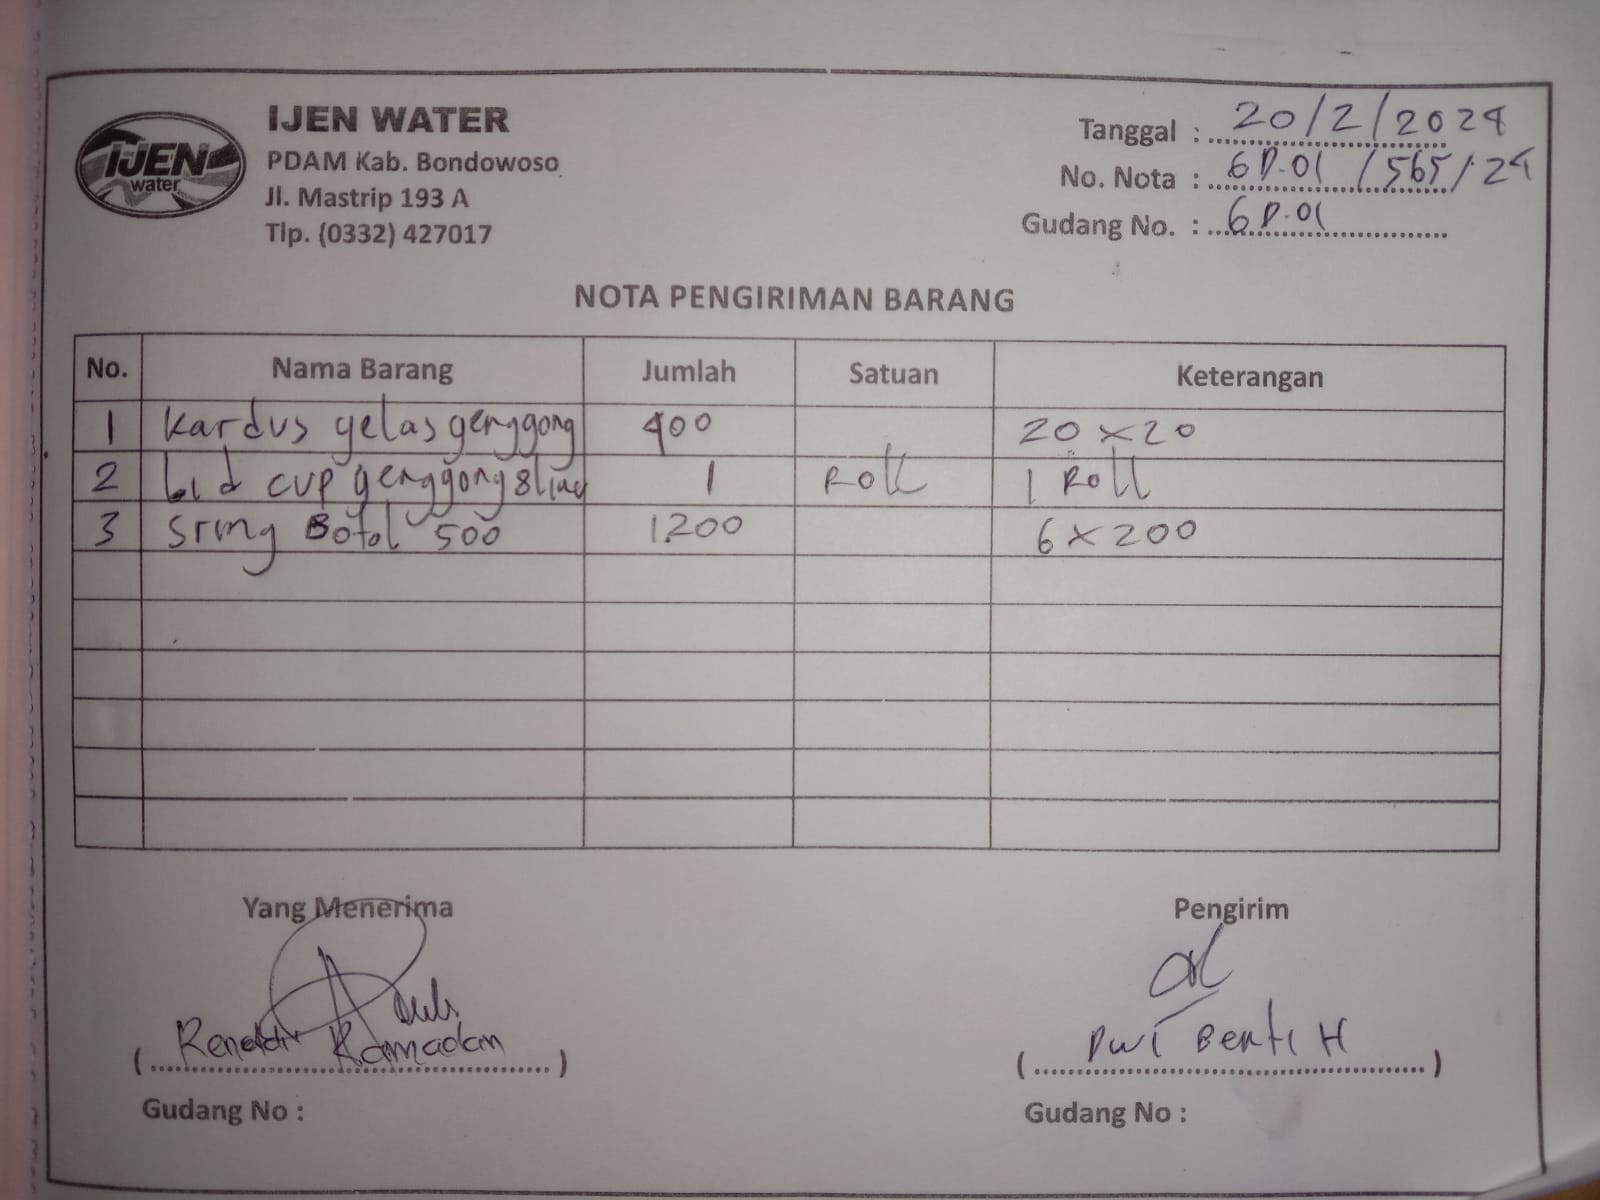 IJEN
water
IJEN WATER
PDAM Kab. Bondowoso
Jl. Mastrip 193 A
Tlp. (0332) 427017
Tanggal : 20/2/2024
No. Nota : GD.01 /565/24
Gudang No. : GD.01
NOTA PENGIRIMAN BARANG
No. Nama Barang Jumlah Satuan Keterangan
1 Kardus gelas genggong 400 20 x 20
2 Lid cup genggong 8 line 1 Roll 1 Roll
3 Sring Botol 500 1.200 6 x 200
Yang Menerima Pengirim
( Renaldi Ramadan ) ( Dwi Bekti H )
Gudang No : Gudang No :